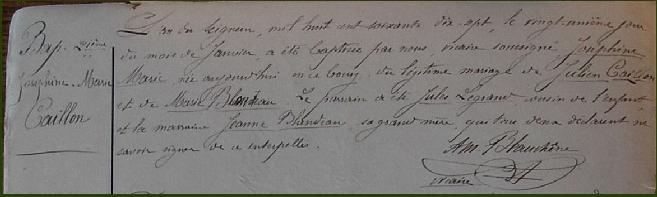 Bap. 
Joséphine-Marie
Caillon
L'an du Seigneur, mil huit cent soixante dix-sept, le vingt-unième jour
du mois de Janvier, a été baptisée par nous, vicaire soussigné Joséphine
Marie née aujourd'hui en ce bourg, du légitime mariage de Julien Caillon
et de Marie Blandeau. Le parrain a été Jules Legrand cousin de l'enfant
et la marraine Jeanne Blandeau sa grand'mère, qui tous deux déclarent ne
savoir signer de ce interpellés.
Am
vicaire